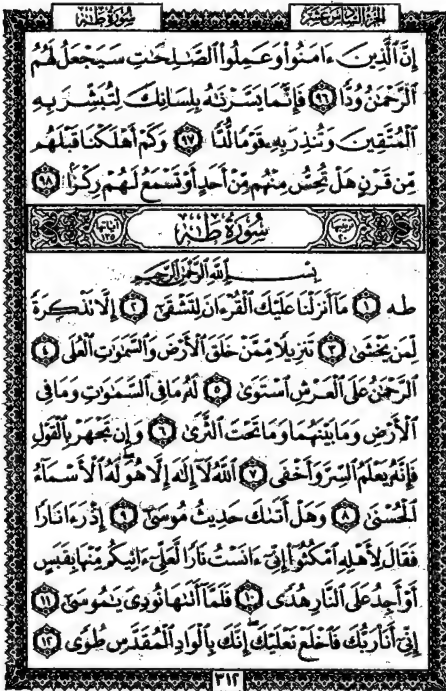 سُورَةُ طٰهٰ
الجُزءُ السَّادِسَ عَشَرَ
إِنَّ ٱلَّذِينَ ءَامَنُوا۟ وَعَمِلُوا۟ ٱلصَّٰلِحَٰتِ سَيَجْعَلُ لَهُمُ
ٱلرَّحْمَٰنُ وُدًّا ٩٦ فَإِنَّمَا يَسَّرْنَٰهُ بِلِسَانِكَ لِتُبَشِّرَ بِهِ
ٱلْمُتَّقِينَ وَتُنذِرَ بِهِۦ قَوْمًا لُّدًّا ٩٧ وَكَمْ أَهْلَكْنَا قَبْلَهُم
مِّن قَرْنٍ هَلْ تُحِسُّ مِنْهُم مِّنْ أَحَدٍ أَوْ تَسْمَعُ لَهُمْ رِكْزًۢا ٩٨
سُورَةُ طٰهٰ
بِسْمِ ٱللَّهِ ٱلرَّحْمَٰنِ ٱلرَّحِيمِ
طه ١ مَآ أَنزَلْنَا عَلَيْكَ ٱلْقُرْءَانَ لِتَشْقَىٰٓ ٢ إِلَّا تَذْكِرَةً
لِّمَن يَخْشَىٰ ٣ تَنزِيلًا مِّمَّنْ خَلَقَ ٱلْأَرْضَ وَٱلسَّمَٰوَٰتِ ٱلْعُلَى ٤
ٱلرَّحْمَٰنُ عَلَى ٱلْعَرْشِ ٱسْتَوَىٰ ٥ لَهُۥ مَا فِى ٱلسَّمَٰوَٰتِ وَمَا فِى
ٱلْأَرْضِ وَمَا بَيْنَهُمَا وَمَا تَحْتَ ٱلثَّرَىٰ ٦ وَإِن تَجْهَرْ بِٱلْقَوْلِ
فَإِنَّهُۥ يَعْلَمُ ٱلسِّرَّ وَأَخْفَى ٧ ٱللَّهُ لَآ إِلَٰهَ إِلَّا هُوَ لَهُ ٱلْأَسْمَآءُ
ٱلْحُسْنَىٰ ٨ وَهَلْ أَتَىٰكَ حَدِيثُ مُوسَىٰٓ ٩ إِذْ رَءَا نَارًا
فَقَالَ لِأَهْلِهِ ٱمْكُثُوٓا۟ إِنِّىٓ ءَانَسْتُ نَارًا لَّعَلِّىٓ ءَاتِيكُم مِّنْهَا بِقَبَسٍ
أَوْ أَجِدُ عَلَى ٱلنَّارِ هُدًى ١٠ فَلَمَّآ أَتَىٰهَا نُودِىَ يَٰمُوسَىٰٓ ١١
إِنِّىٓ أَنَا۠ رَبُّكَ فَٱخْلَعْ نَعْلَيْكَ إِنَّكَ بِٱلْوَادِ ٱلْمُقَدَّسِ طُوًى ١٢
٣١٢